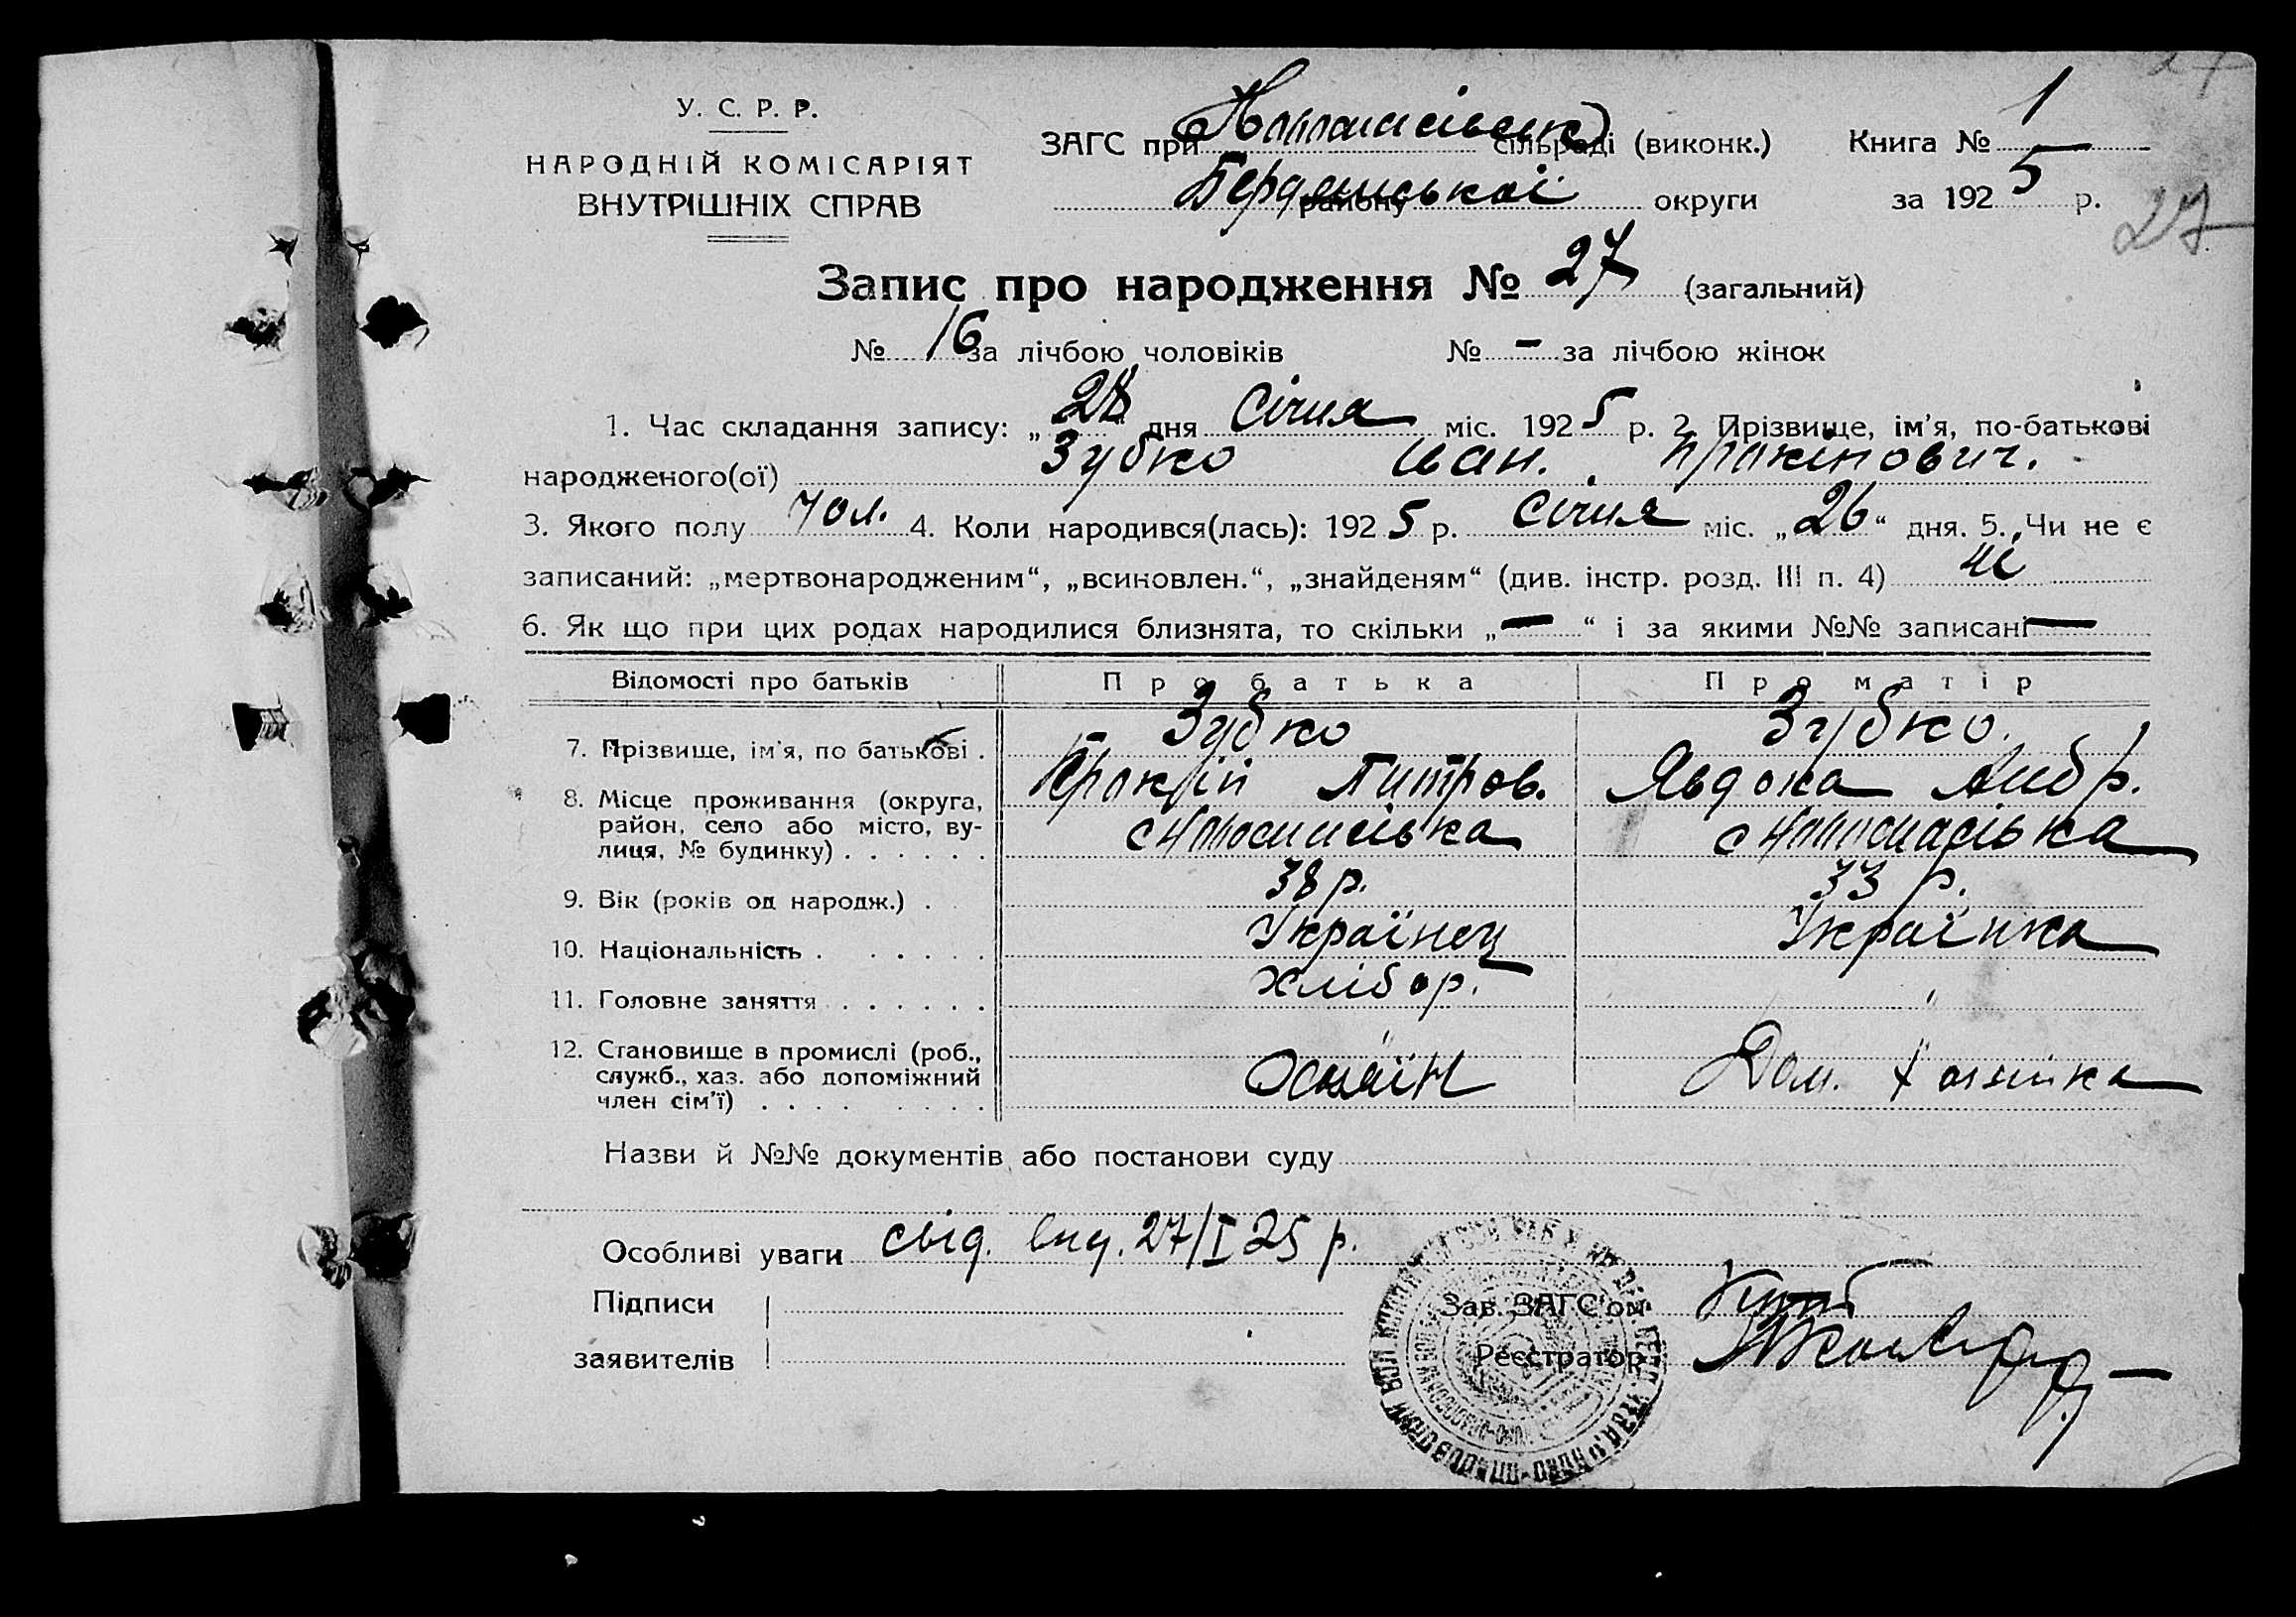 У. С. Р. Р.
НАРОДНІЙ КОМІСАРІЯТ
ВНУТРІШНІХ СПРАВ
ЗАГС при сільраді (виконк.) Книга № 1
району Бердянської округи за 1925 р.
27
Запис про народження № 27 (загальний)
№ 16 за лічбою чоловіків № - за лічбою жінок
1. Час складання запису: „28" дня Січня міс. 1925 р. 2. Прізвище, ім'я, по-батькові
народженого(ої) Зубко Іван. Пракіпович.
3. Якого полу чол. 4. Коли народився(лась): 1925 р. Січня міс. „26“ дня. 5. Чи не є
записаний: „мертвонародженим“, „всиновлен.“, „знайденям“ (див. інстр. розд. III п. 4) ні
6. Як що при цих родах народилися близнята, то скільки „—“ і за якими №№ записані —
Відомості про батьків Про батька Про матір
7. Прізвище, ім'я, по батькові . Зубко Зубко.
Питров. Явдоха Андр.
8. Місце проживання (округа,
район, село або місто, ву-
лиця, № будинку) . . . . . .
9. Вік (років од народж.) . 38 р. 33 р.
10. Національність . . . . . . Українец Українка
11. Головне заняття . . . . . . Хлібор. "
12. Становище в промислі (роб.,
служб., хаз. або допоміжний
член сім'ї) . . . . . . . . Дом.
Назви й №№ документів або постанови суду
Особливі уваги свід. вид. 27/I 25 р.
Підписи Зав. ЗАГС'ом
заявителів Реєстратор